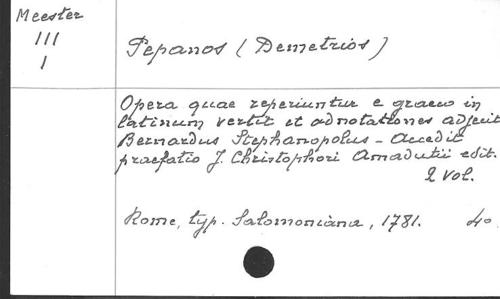 Meester
III
1
Pepanos (Demetrios)
Opera quae reperiuntur e graeco in
latinum vertit et adnotationes adjecit
Bernardus Stephanopolus - Accedit
praefatio J. Christophori Amadutii edit.
2 vol.
Rome, typ. Salomoniana, 1781. 4o.